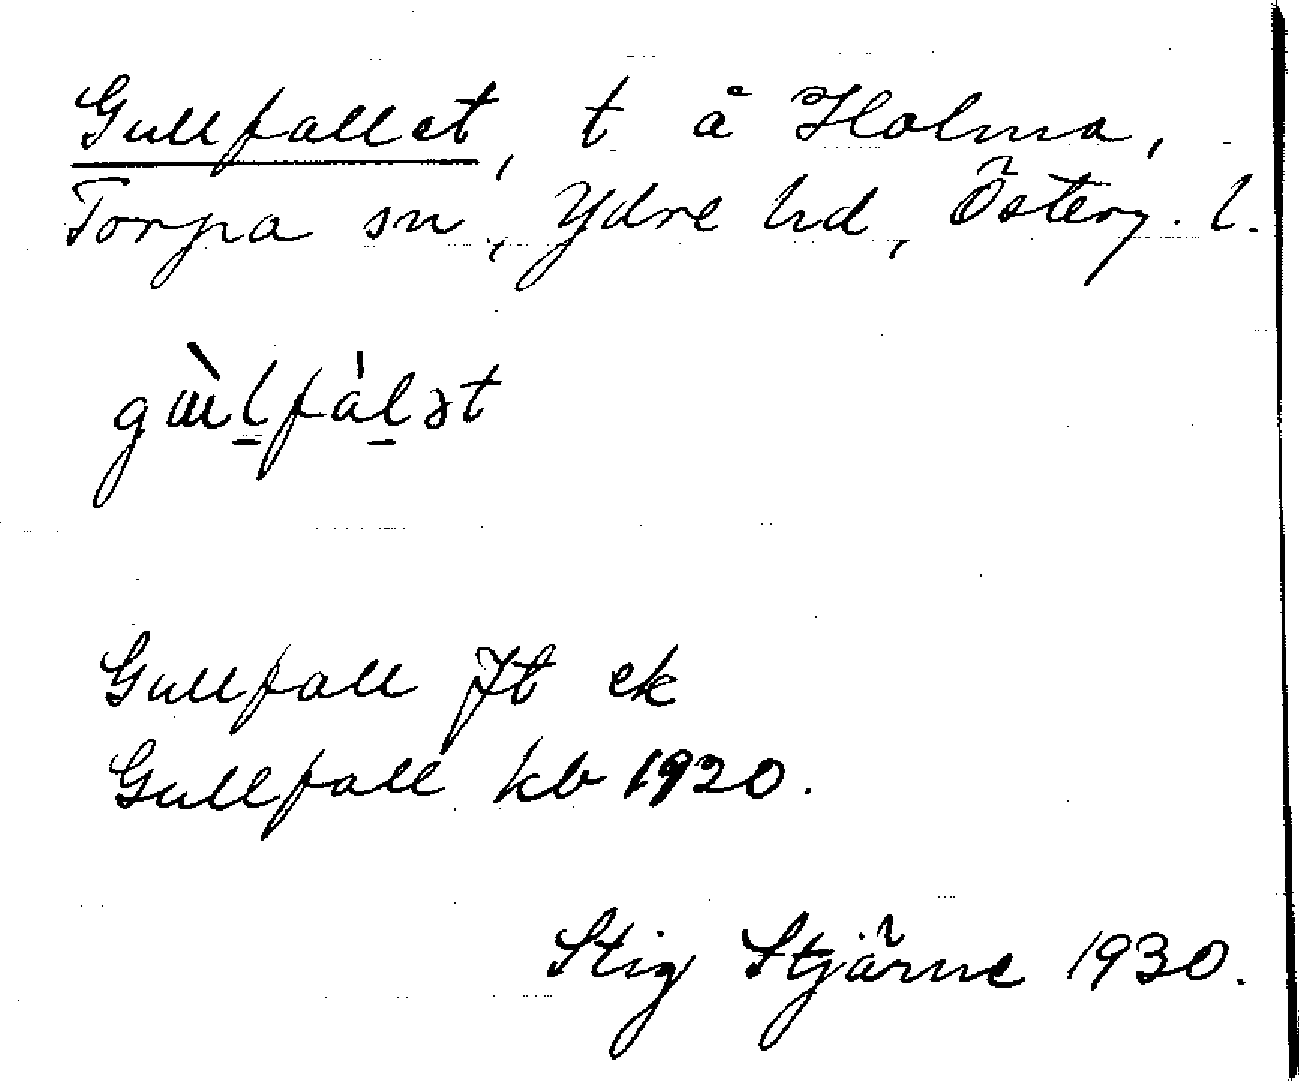 Gullfallet, t å Holma,
Torpa sn, Ydre hd, Österg. l.
gɯ̀lfàlət
Gullfall Jt ek
Gullfall kb 1920.
Stig Stjärne 1930.